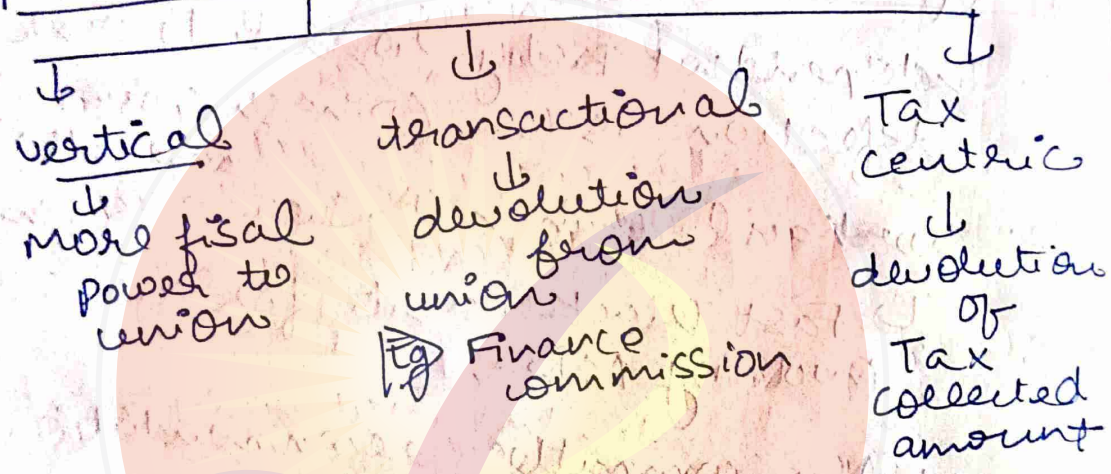 vertical
↓
more fisal
power to
union
transactional
↓
devolution
from
union
Eg Finance
commission
Tax
centric
↓
devolution
of
Tax
collected
amount